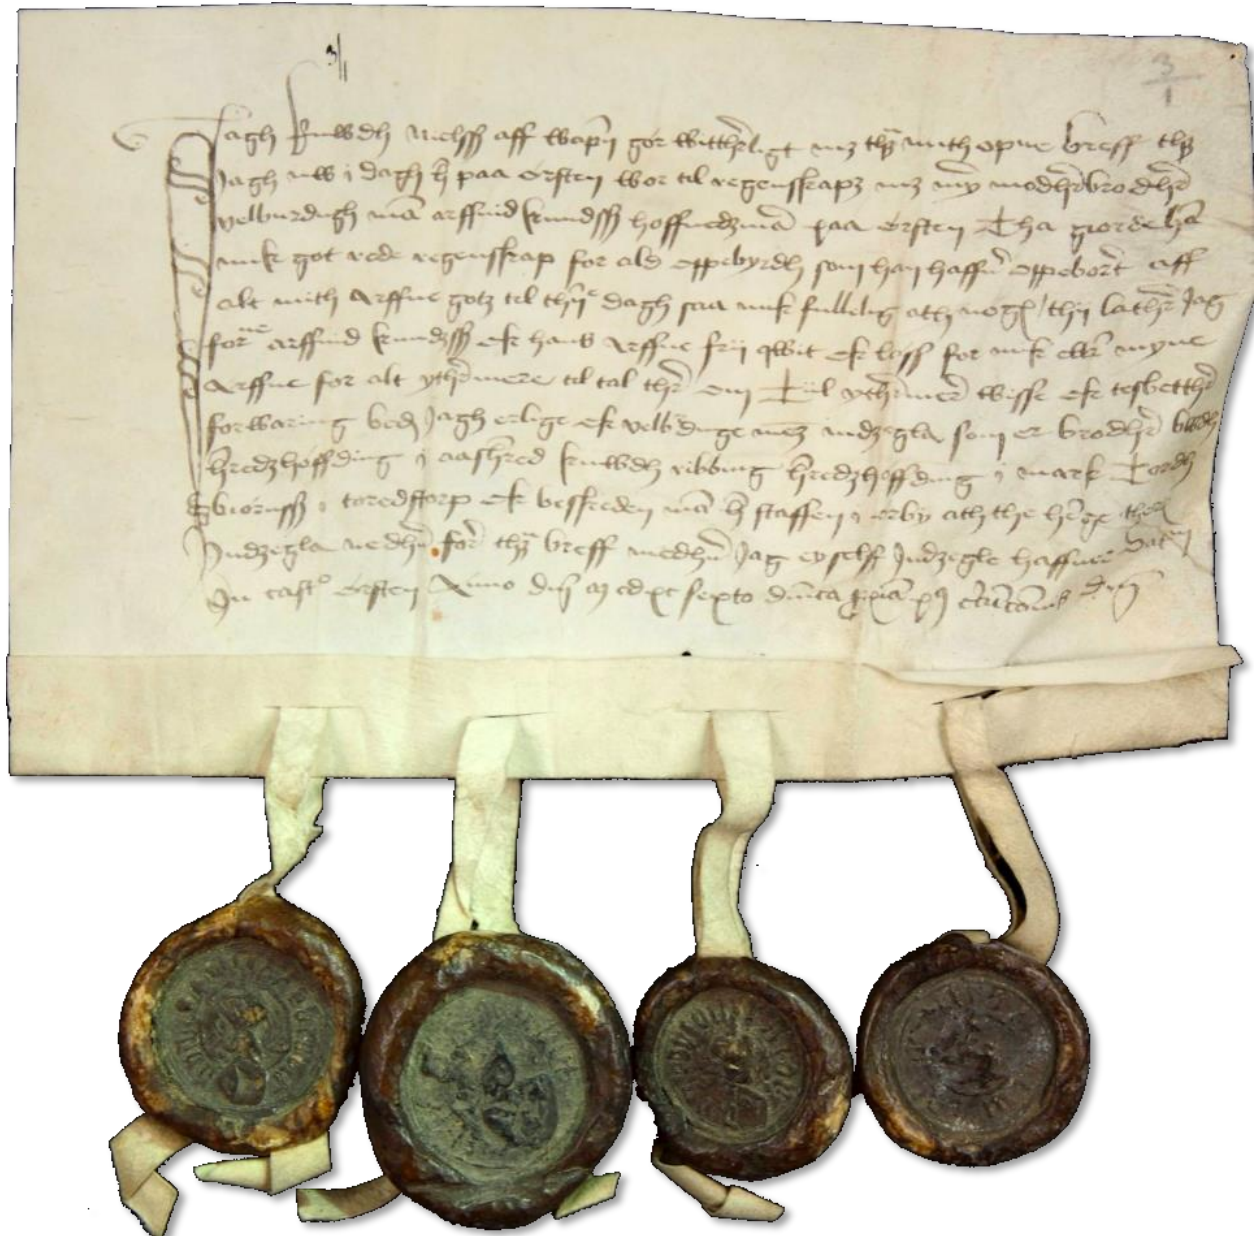 3/1
3/1
Jagh knwdh nielss aff wapn gør witthrligt mz thz mith opne breff thz
Jagh nw i dagh hr paa ørsten wor til regenskapz mz myn modhrbrodhr
velburdugh man arffuid knudss hoffuedzman paa ørsten Tha giorde han
mik got rede regenskap for ald oppebyrdh som han haffuer oppebort aff
alt mith arffue gotz til thn dagh saa mik fulleligh ath nogx thy lathr Jag
forne arffuid knudzss ok hans arffue frii qwit ok løss for mik ok myne
arffue for alt ythrmere til tal thr om Til ythrmer wisse ok tesbetthr
forwaring bedr Jagh erlige ok velbrduge mentz indzegla som er brodhr
hredzhøffding i aashred knwdh ribbing hredzhøffding i mark Tordh
biørnss i toredstorp ok beskeden man hr staffen i ørby ath the hengx
Indzegla nedhn for thz breff medhn Jag ey selff Indzegle haffuer Datum
In casto ørsten Anno dni m cdxc sexto dnica pxima